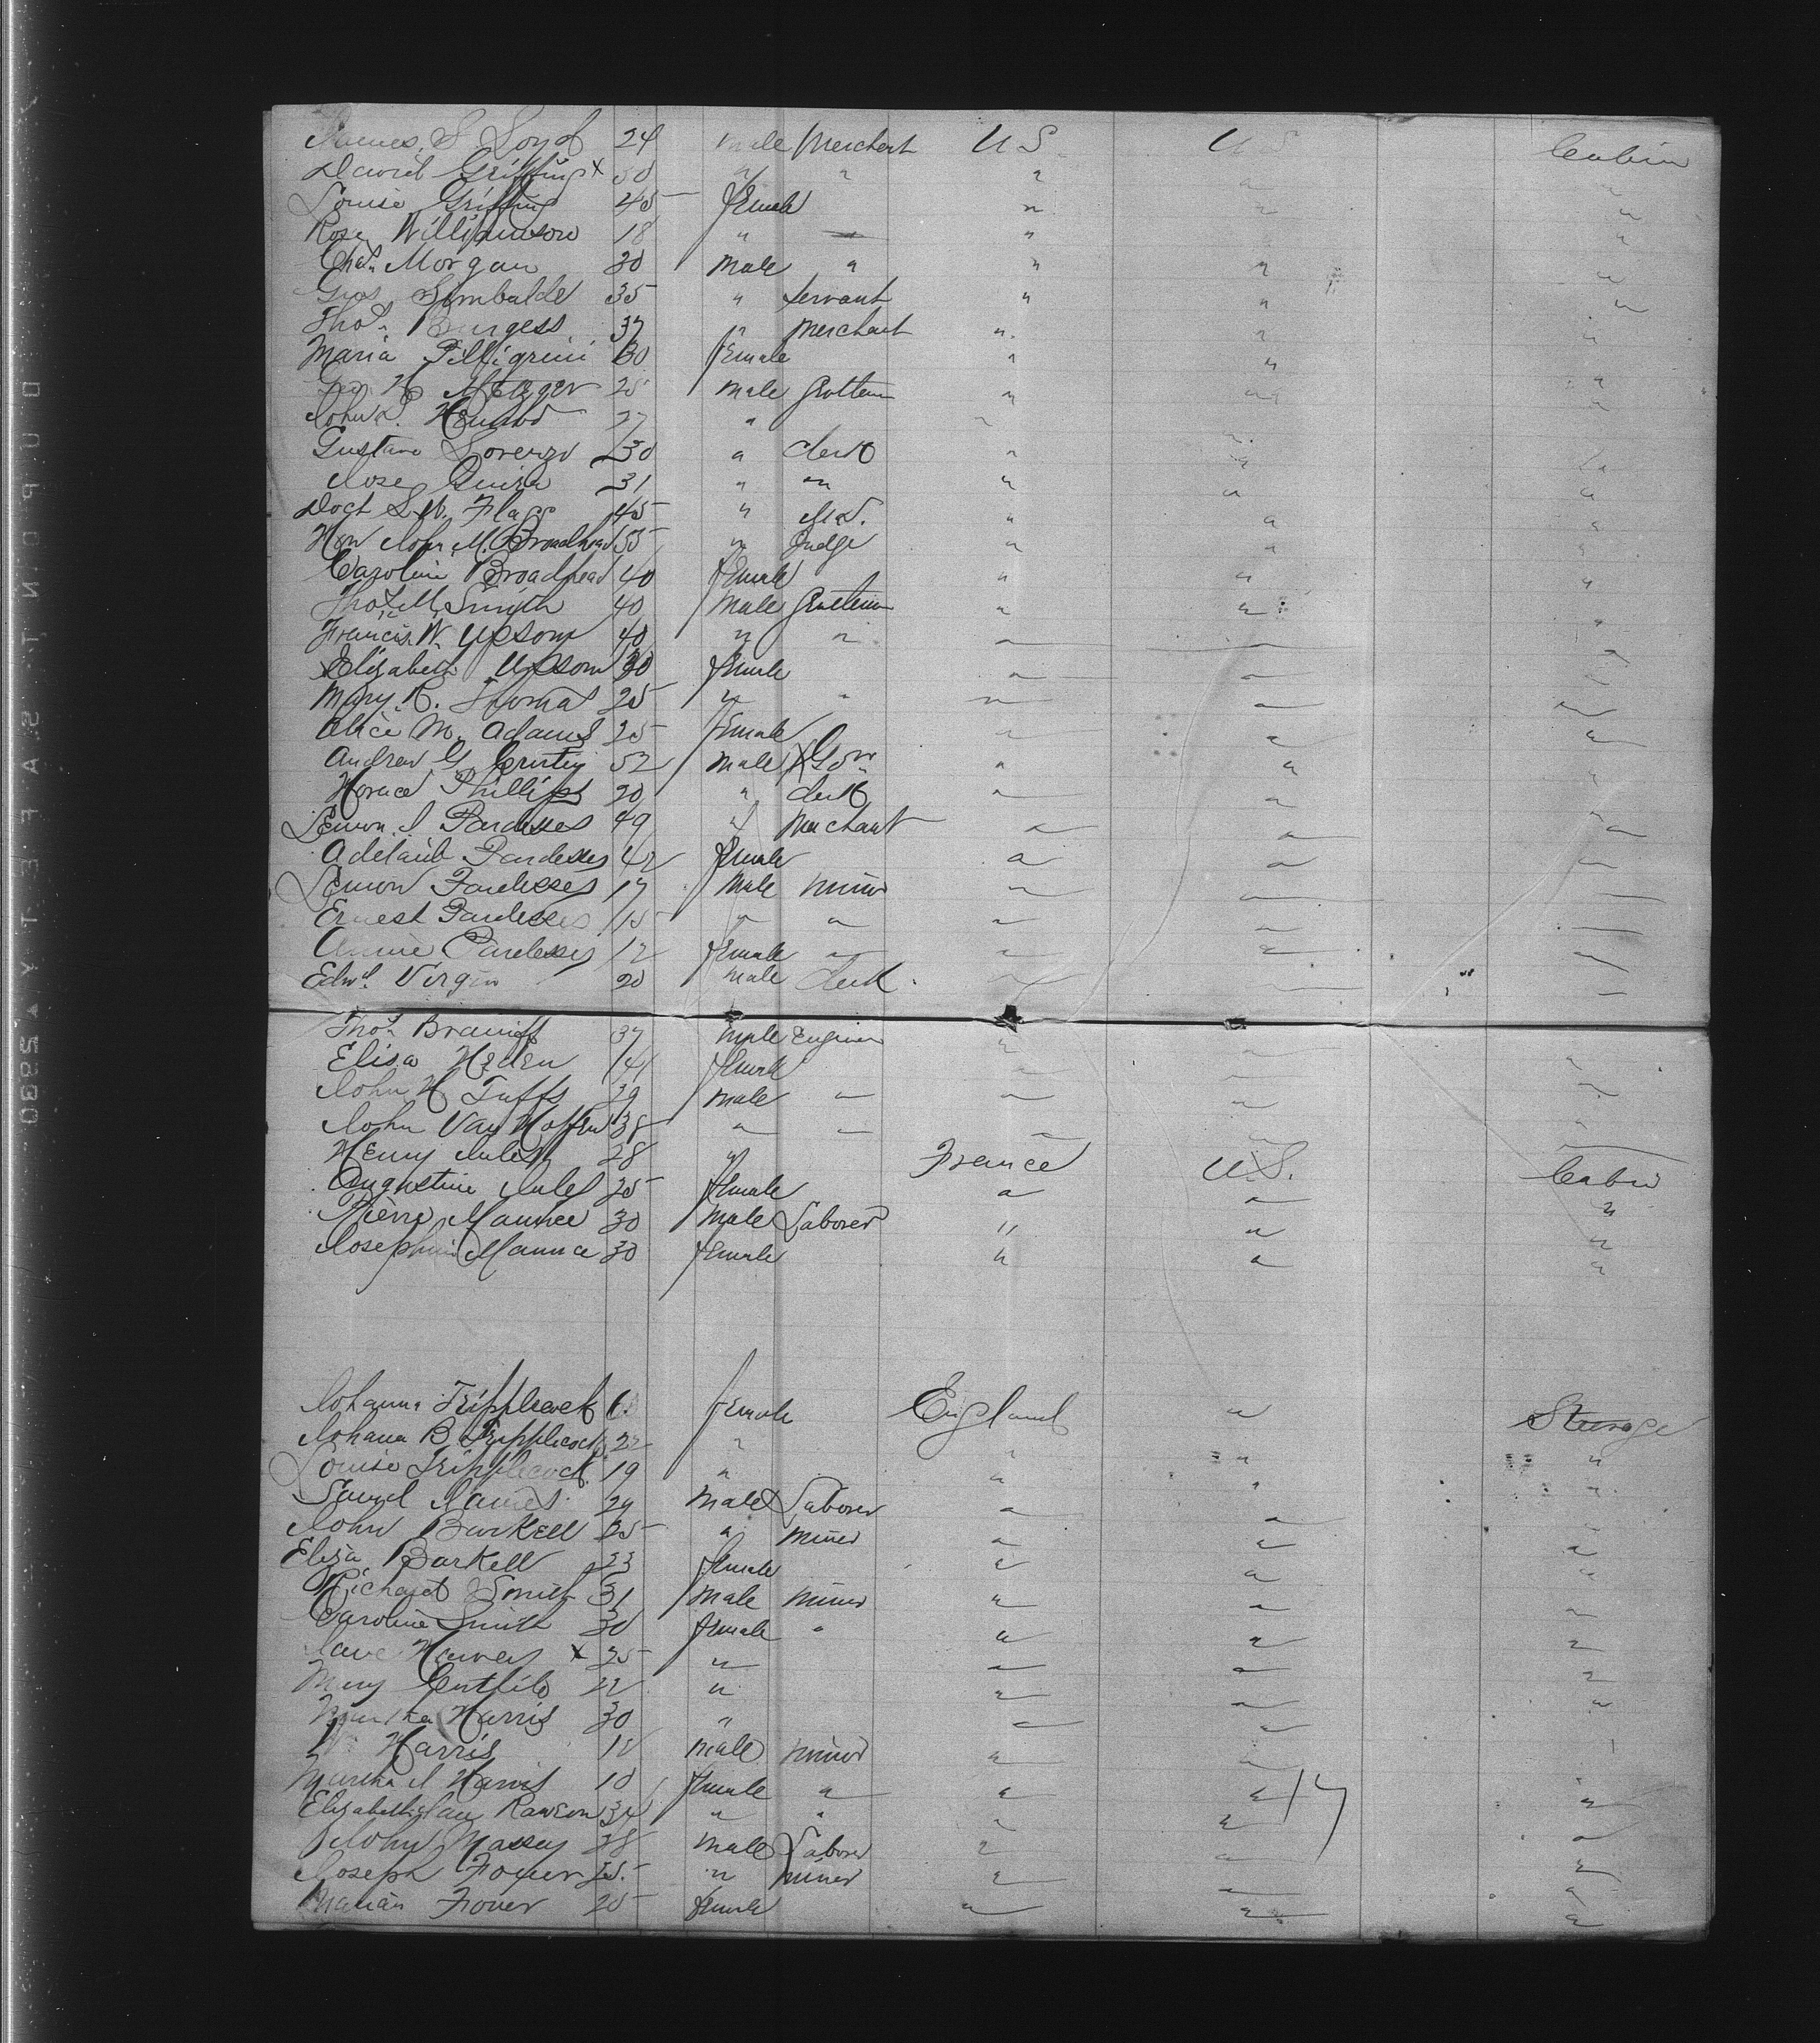 James S. Loyd 24 male Merchant U S U S Cabin
David Griffing x 50 " " " " "
Louise Griffing 45 female " " "
Rose Williamson 18 " " " "
Chas. Morgan 30 male " " " "
35 " Servant " " "
Thos. Burgess 37 " Merchant " " "
Maria Pilligrini 30 female " " "
H Metzger 25 male " " "
John S. 27 " " " "
Gustavo Lorenzo 30 " clerk " " "
Jose 31 " " " " "
Doct S. W. Flagg 45 " M.D. " " "
Hon John M. Broadhead 55 " Judge " " "
Caroline Broadhead 40 female " " "
Thos. M. Smith 40 male " " "
Francis W. Upsom 40 " " " " "
Elizabeth Upsom 30 female " " "
Mary R. Thomas 25 " " " " "
Alice M. Adams 25 female " " "
Andrew G. 52 male Gov " " "
Horace Phillips 20 " clerk " " "
Lemon I Pardesses 49 " Merchant " " "
Adelaide Pardesses 42 female " " "
Lemon Pardesses 17 male minor " " "
Ernest Pardesses 15 " " " " "
Annie Pardesses 12 female " " " "
Edwd. Virgin 20 male clerk " " "
Thos. Braniff 37 male Engineer " " "
Elisa Heden 41 female " " "
John H Tuffs 39 male " " " "
John Van 38 " " " " "
Henry Jules 28 " France U.S. Cabin
Augustine Jules 25 female " " "
Pierre Maurice 30 male Laborer " " "
Josephine Maurice 30 female " " "
Johanna Tripplecock female England " Steerage
Johana B Tripplecock 22 " " " "
Louise Tripplecock 19 " " " "
Samuel James 24 male Laborer " " "
John Barkell 25 " miner " " "
Eliza Barkell 23 female " " "
Richard Smith 31 male miner " " "
Caroline Smith 30 female " " " "
Jane x 25 " " " "
Mary 22 " " " "
Martha Harris 30 " " " "
Harris male minor " "
Martha J Harris 10 female " " " 17 "
Elizabeth Jane Rawson 34 " " " " "
John Massey 28 male Laborer " " "
Joseph 25 " miner " " "
female " " "